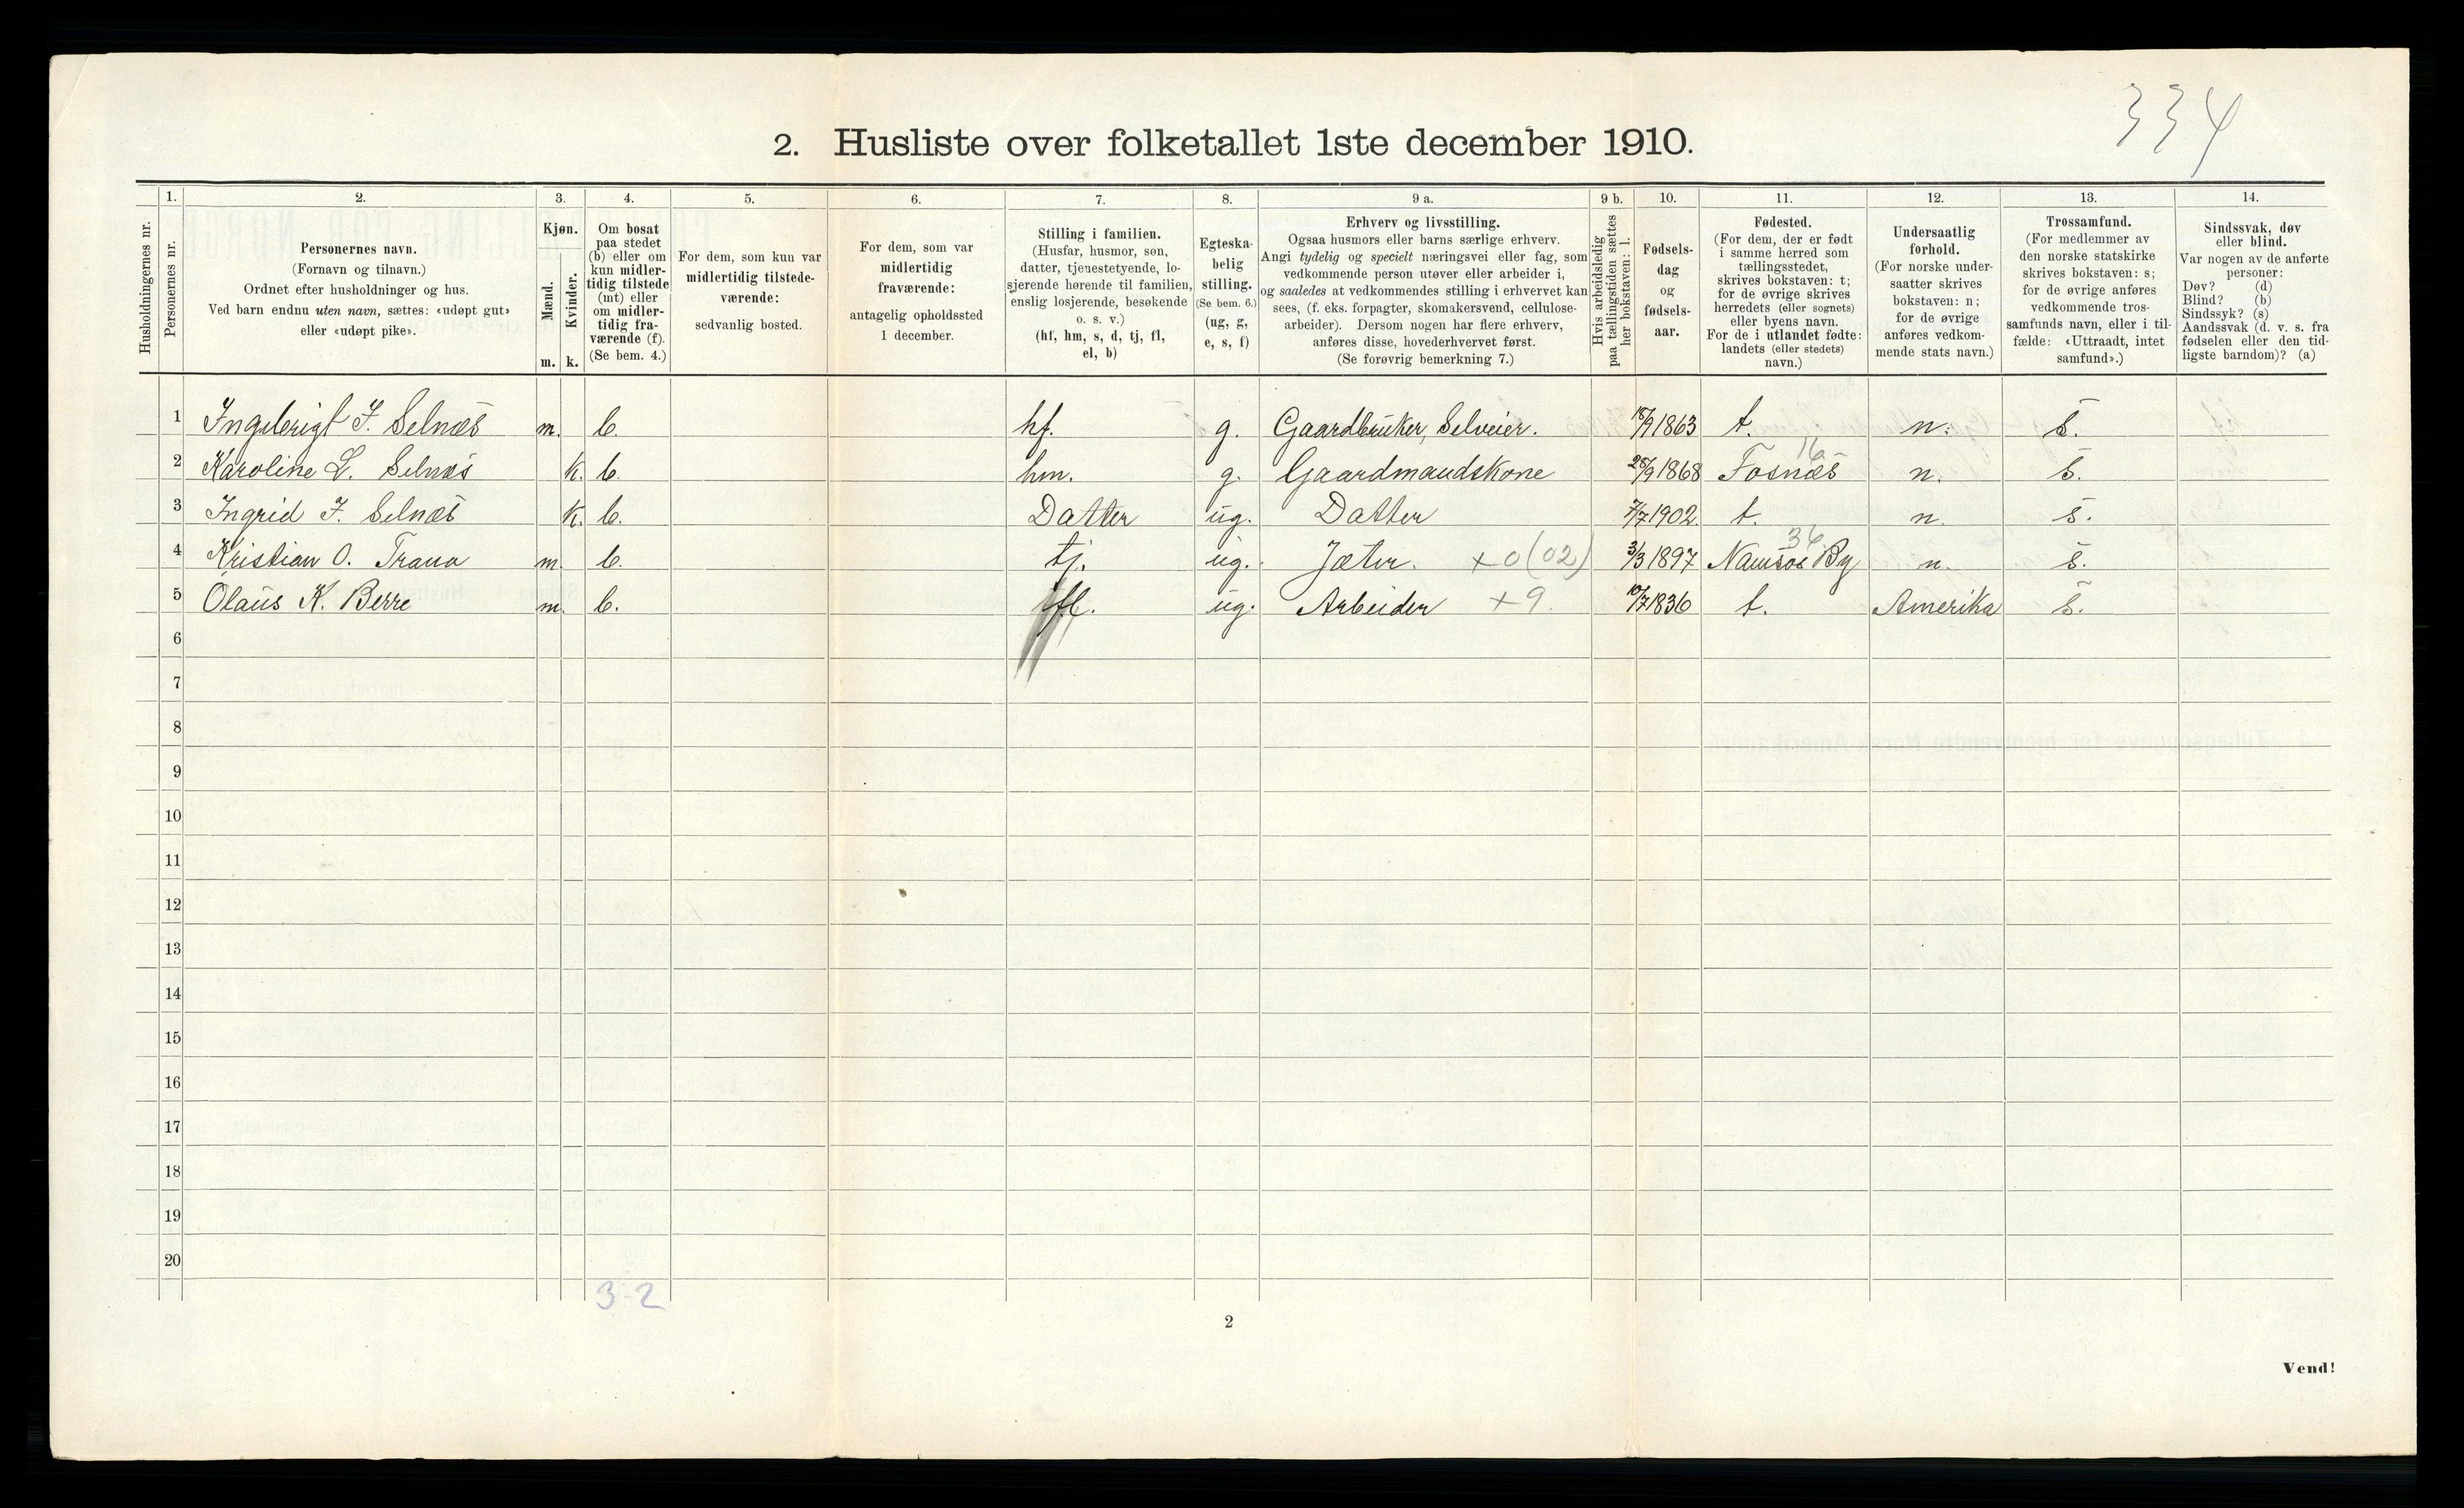 334
2. Husliste over folketallet 1ste december 1910.
Husholdningernes nr.
1.
Personernes nr.
2.
Personernes navn.
(Fornavn og tilnavn.)
Ordnet efter husholdninger og hus.
Ved barn endnu uten navn, sættes: «udøpt gut»
eller «udøpt pike».
3.
Kjøn.
Mænd.
Kvinder.
m. k.
4.
Om bosat
paa stedet
(b) eller om
kun midler-
tidig tilstede
(mt) eller
om midler-
tidig fra-
værende (f).
(Se bem. 4.)
5.
For dem, som kun var
midlertidig tilstede-
værende:
sedvanlig bosted.
6.
For dem, som var
midlertidig
fraværende:
antagelig opholdssted
1 december.
7.
Stilling i familien.
(Husfar, husmor, søn,
datter, tjenestetyende, lo-
sjerende hørende til familien,
enslig losjerende, besøkende
o. s. v.)
(hf, hm, s, d, tj, fl,
el, b)
8.
Egteska-
belig
stilling.
(Se bem. 6.)
(ug, g,
e, s, f)
9 a.
Erhverv og livsstilling.
Ogsaa husmors eller barns særlige erhverv.
Angi tydelig og specielt næringsvei eller fag, som
vedkommende person utøver eller arbeider i,
og saaledes at vedkommendes stilling i erhvervet kan
sees, (f. eks. forpagter, skomakersvend, cellulose-
arbeider). Dersom nogen har flere erhverv,
anføres disse, hovederhvervet først.
(Se forøvrig bemerkning 7.)
9 b.
Hvis arbeidsledig
paa tællingstiden sættes
her bokstaven: l.
10.
Fødsels-
dag
og
fødsels-
aar.
11.
Fødested.
(For dem, der er født
i samme herred som
tællingsstedet,
skrives bokstaven: t;
for de øvrige skrives
herredets (eller sognets)
eller byens navn.
For de i utlandet fødte:
landets (eller stedets)
navn.)
12.
Undersaatlig
forhold.
(For norske under-
saatter skrives
bokstaven: n;
for de øvrige
anføres vedkom-
mende stats navn.)
13.
Trossamfund.
(For medlemmer av
den norske statskirke
skrives bokstaven: s;
for de øvrige anføres
vedkommende tros-
samfunds navn, eller i til-
fælde: «Uttraadt, intet
samfund».)
14.
Sindssvak, døv
eller blind.
Var nogen av de anførte
personer:
Døv? (d)
Blind? (b)
Sindssyk? (s)
Aandssvak (d. v. s. fra
fødselen eller den tid-
ligste barndom)? (a)
1 Ingebrigt J. Selnæs m. b. hf. g. Gaardbruker, Selveier. 18/9 1863 t. n. s.
16
2 Karoline L. Selnæs k. b. hm. g. Gaardmandskone 28/9 1868 Fosnæs n. s.
3 Ingrid J. Selnæs k. b. Datter ug. Datter 7/7 1902 t. n. s.
36
4 Kristian O. Trana m. b. tj. ug. Jæter. +0(02) 3/3 1897 Namsos By n. s.
5 Olaus K. Berre m. b. fl. ug. Arbeider +9. 10/7 1836 t. Amerika s.
6
7
8
9
10
11
12
13
14
15
16
17
18
19
20
3-2
2
Vend!